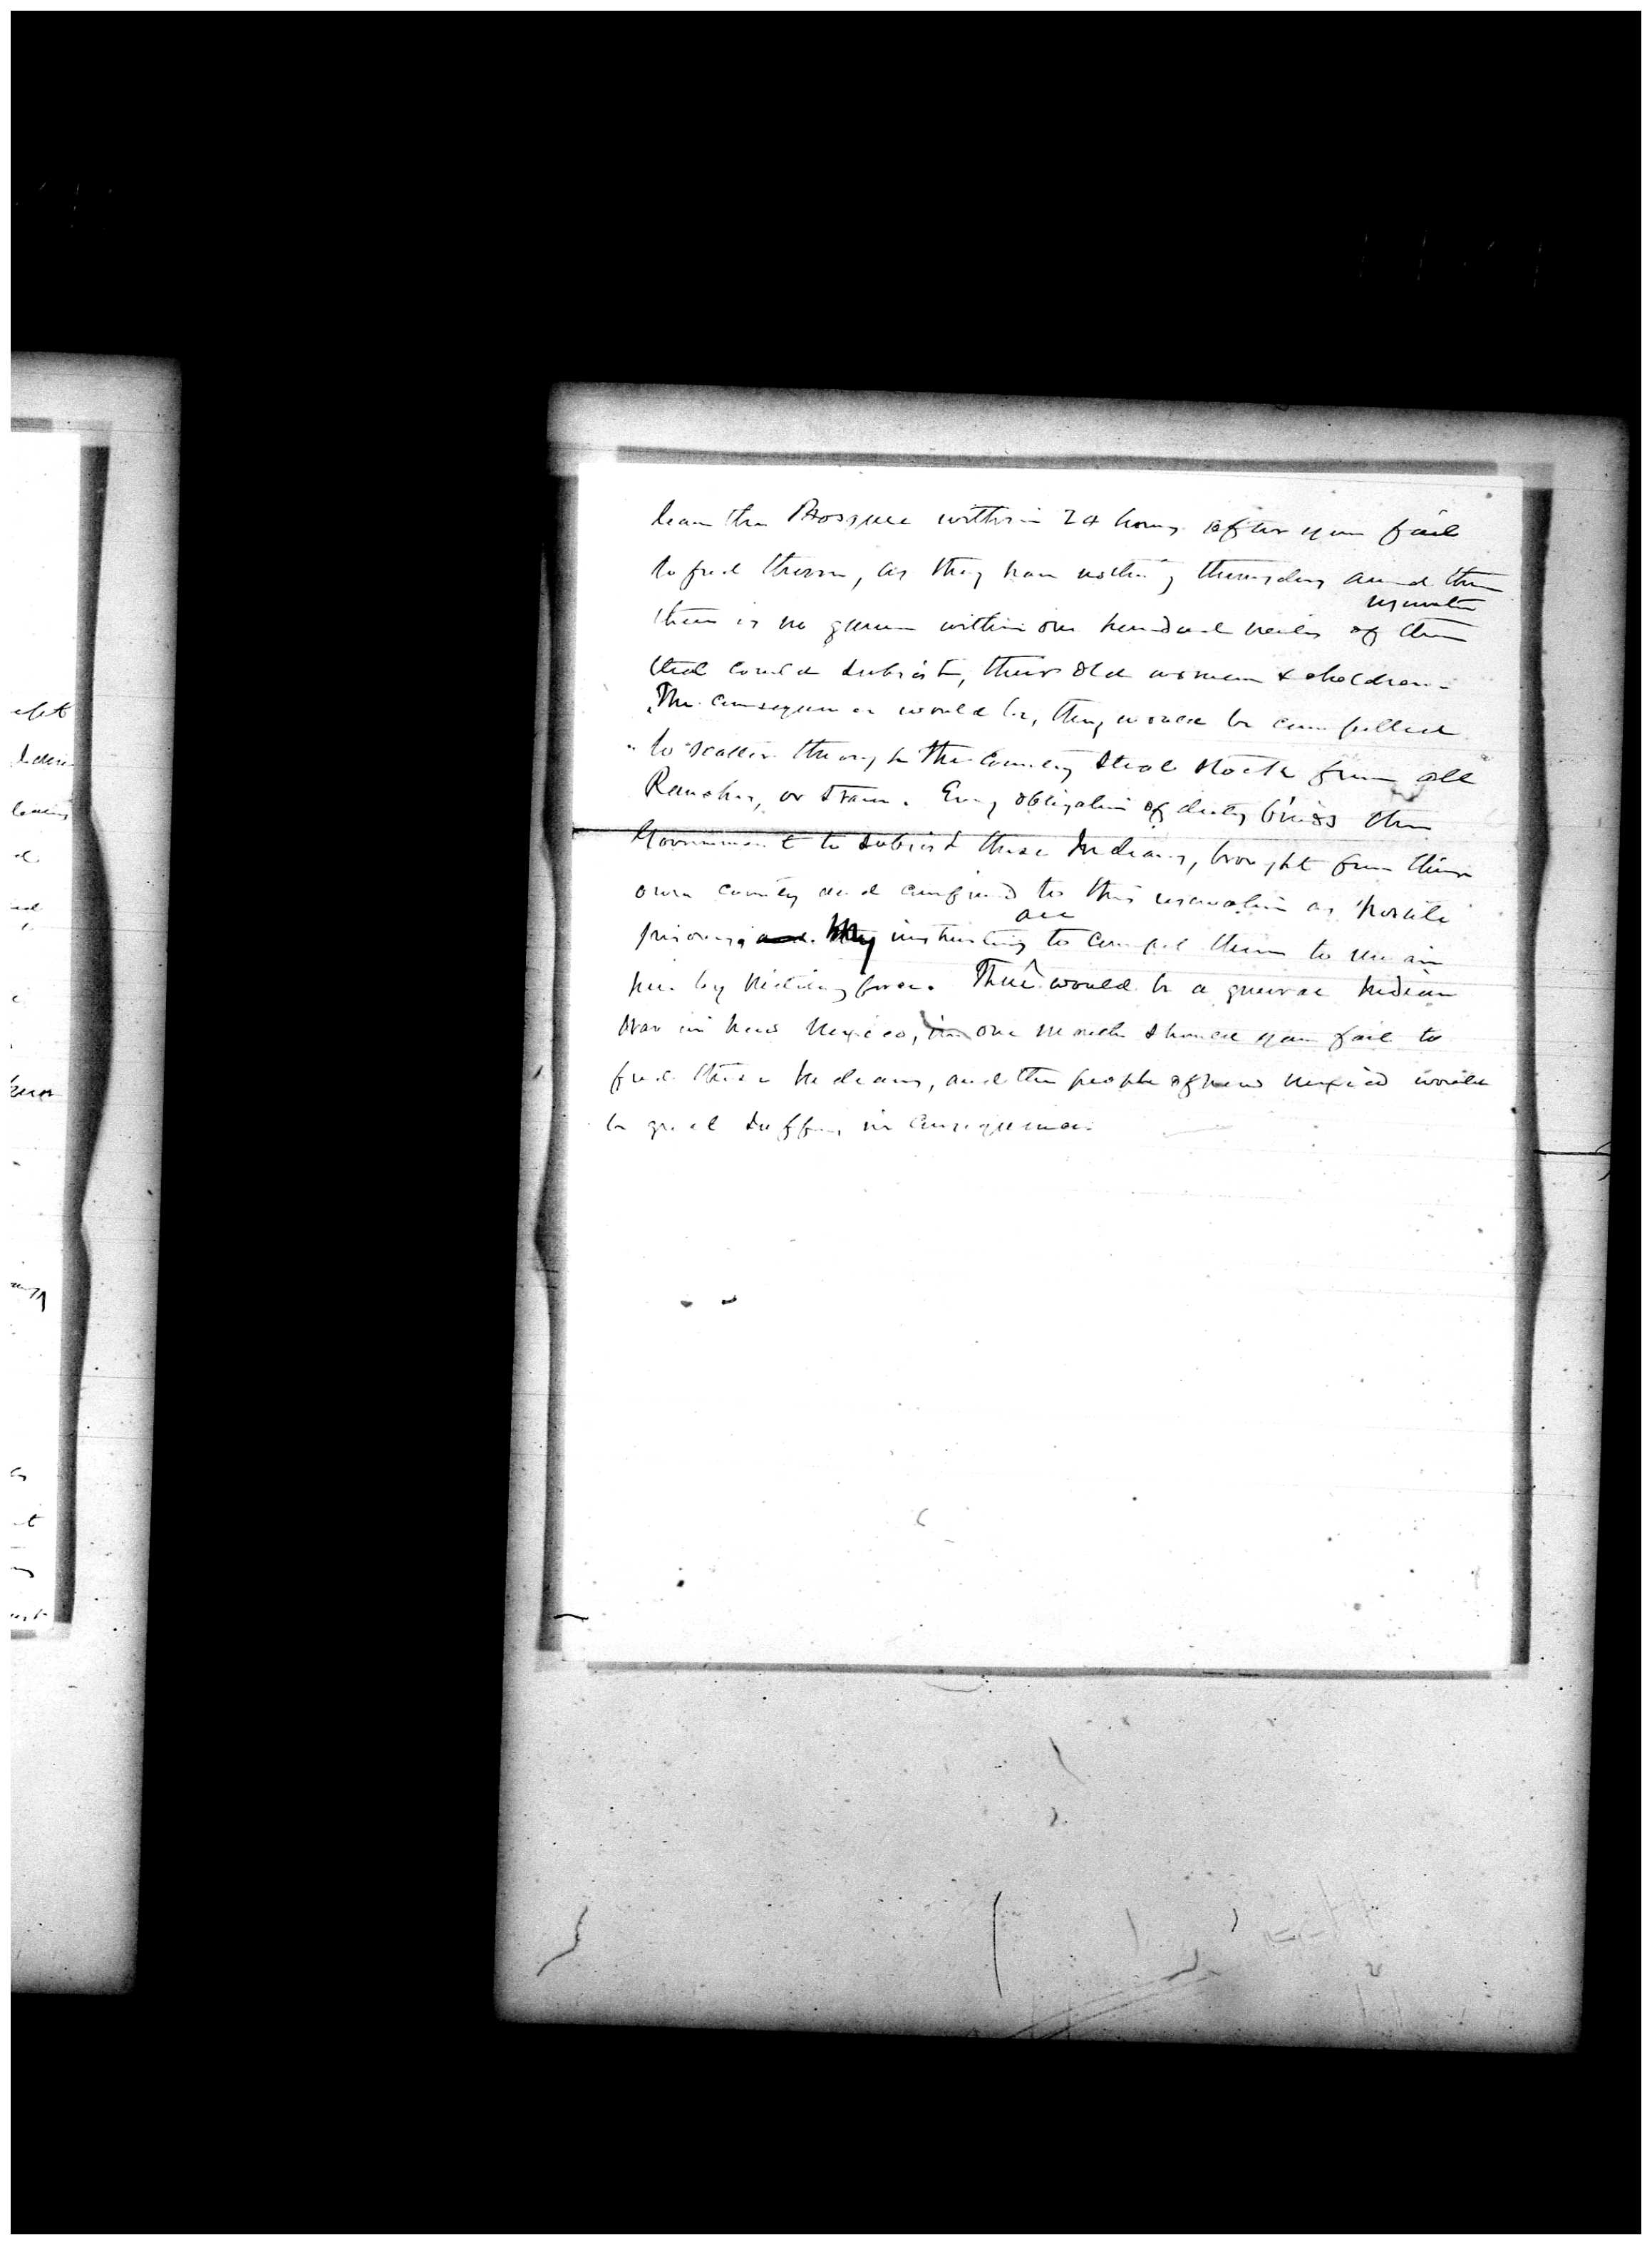 leave the Bosque within 24 hours after you fail
to feed them, as they have nothing themselves and the
there is no game within one hundred miles of them
that could subsist, their old women & children.
The consequence would be, they would be compelled
to scatter through the Country steal stock from all
Ranches, or starve. Every obligation of duty binds the
Government to subsist these Indians, brought from their
own country and confined to this reservation as hostile
are
prisoners, and my instructions to compel them to remain
here by military force. There would be a general Indian
War in New Mexico, in one month should you fail to
feed these Indians, and the people of New Mexico would
be great suffers in consequence.